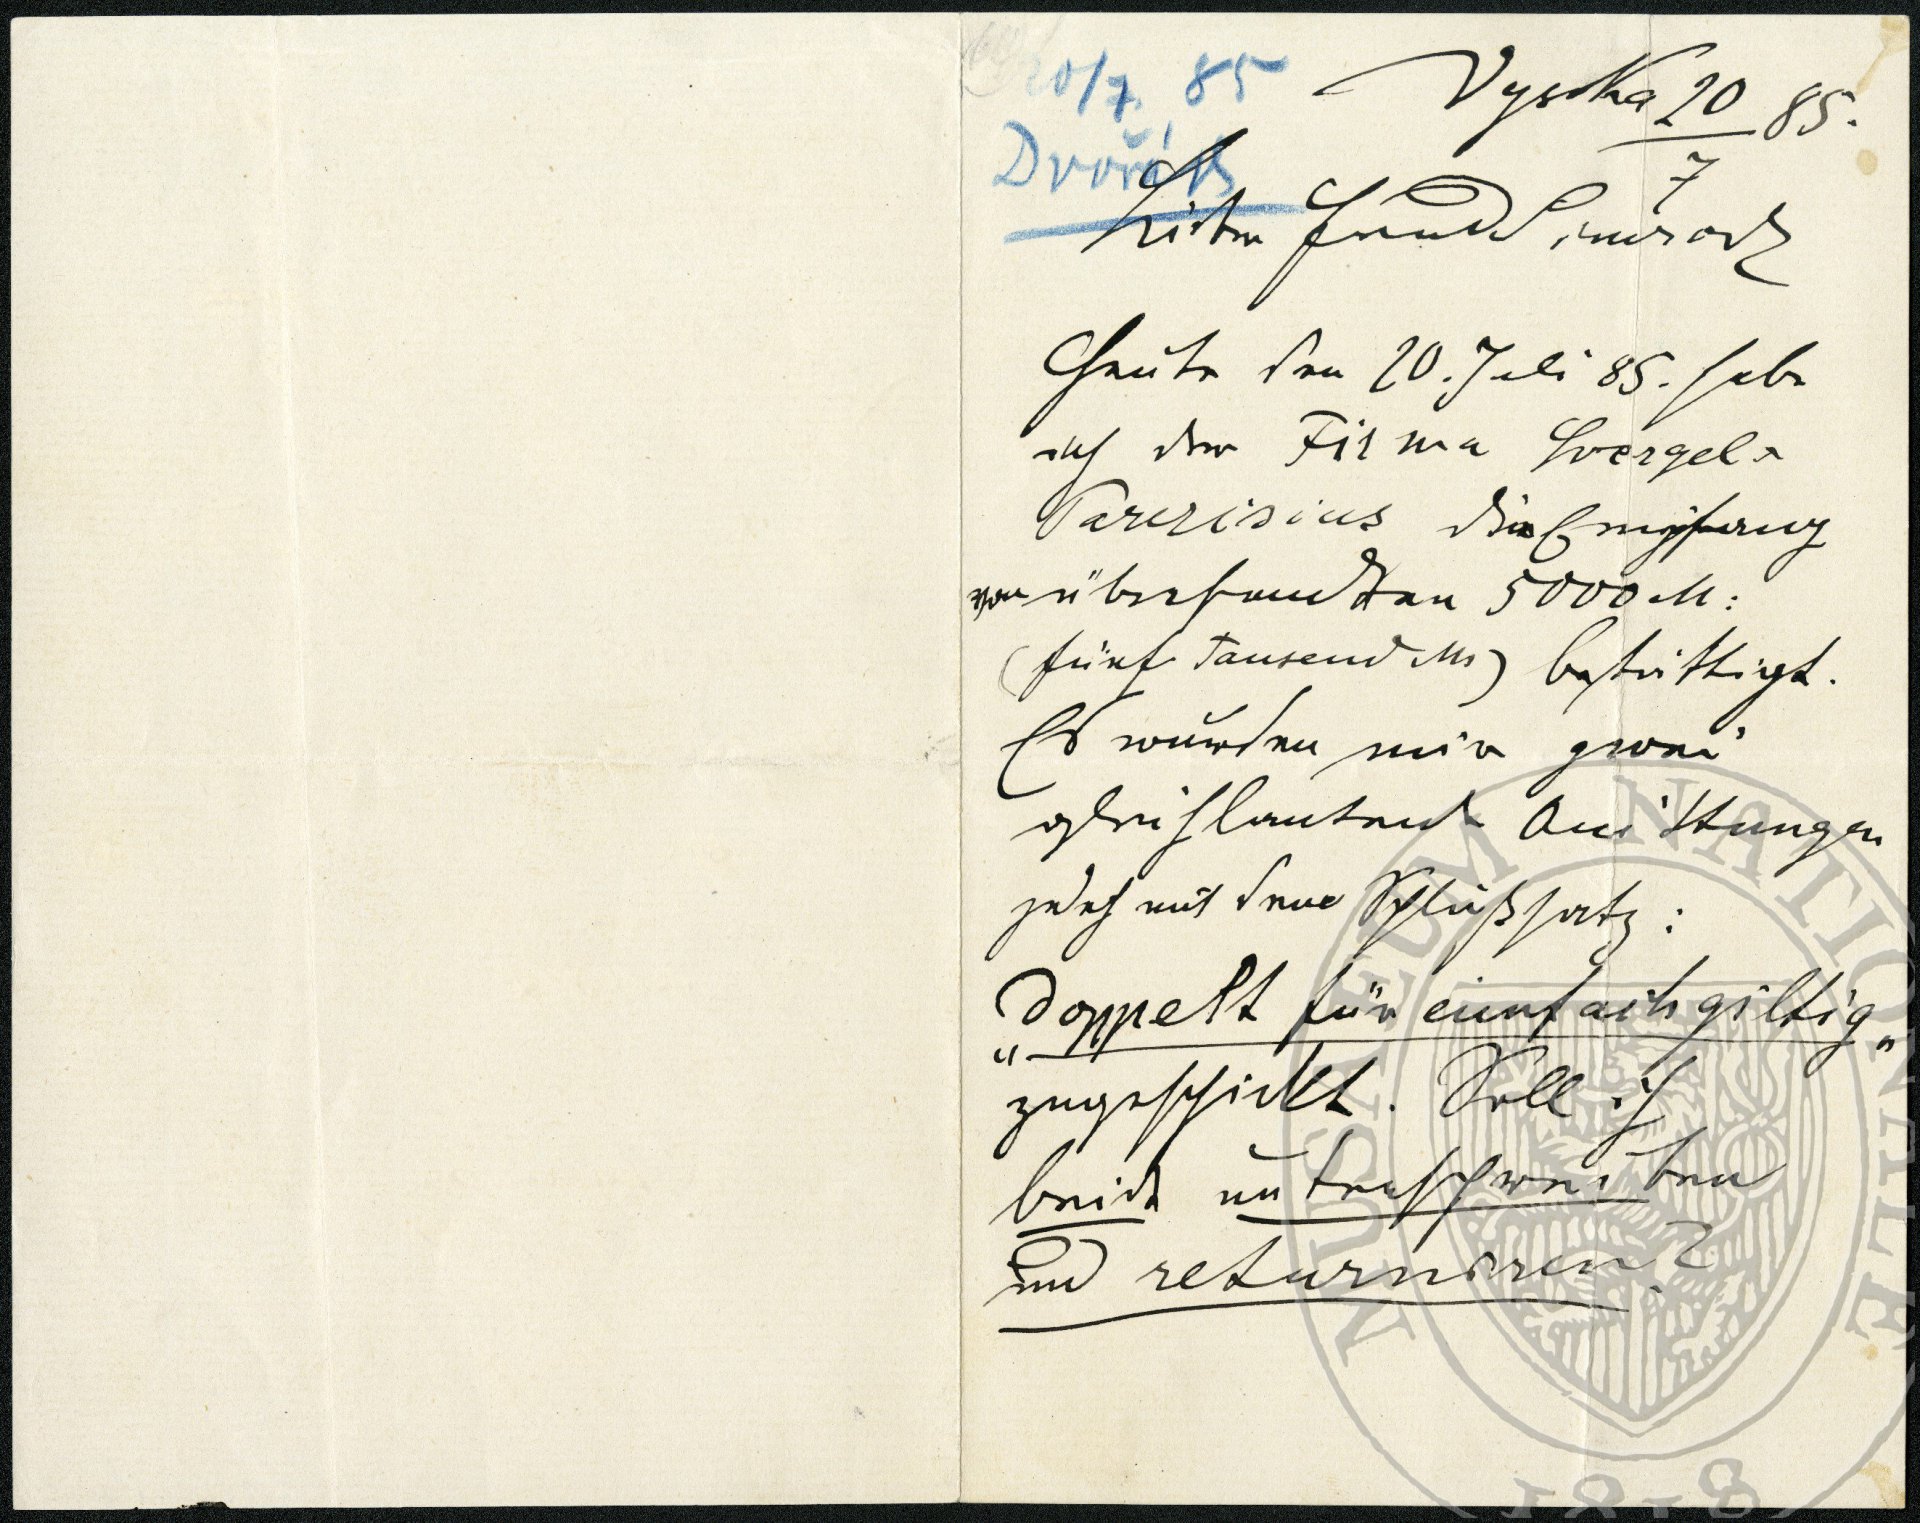 20/7. 85
Dvořák
Vysoka 20/7 85.
Lieber Freund Simrock
Heute den 20. Juli 85. habe
ich der Firma Soergel &
Parrisius die Empfang
von übersandten 5000 M:
(fünf Tausend M) bestättigt.
Es wurden mir zwei
gleichlautende Quittungen
jedoch mit dem Schlußsatz:
„Doppelt für einfach giltig"
zugeschickt. Soll ich
beide unterschreiben
und returniren?
MUSEUM NATIONALE
1818